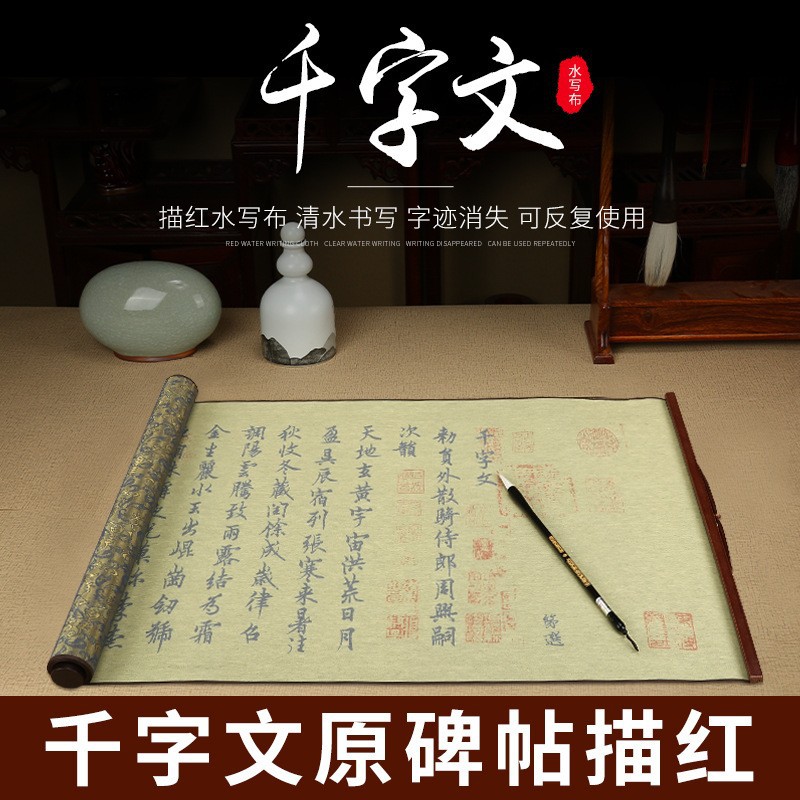 千字文
水写布
描红水写布 清水书写 字迹消失 可反复使用
RED WATER WRITING CLOTH CLEAR WATER WRITING WRITING DISAPPEARED CAN BE USED REPEATEDLY
千字文
勅員外散騎侍郎周興嗣
次韻
天地玄黃宇宙洪荒日月
盈昃辰宿列張寒来暑往
秋收冬藏閏餘成歲律召
調陽雲騰致雨露結為霜
金生麗水玉出崐崗劒號
千字文原碑帖描红